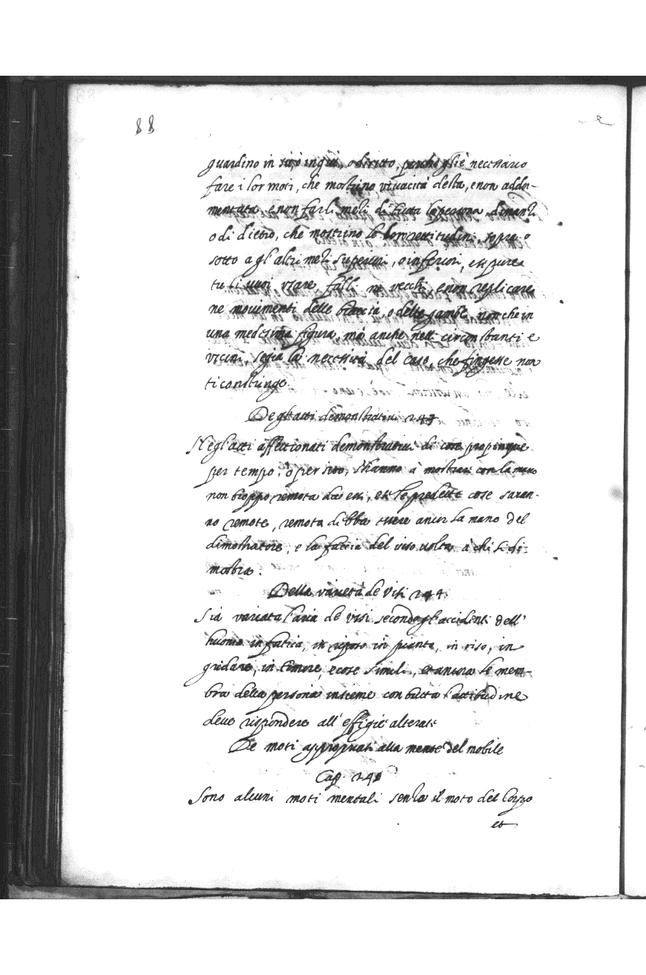 88
guardino in su o in giù, o diritto, perche gl'è necessario
fare i lor moti, che mostrino vivacità desta, e non addor-
mentata, e non farli meli di tutta la persona dinanti
o di dietro, che mostrino le loro rettitudini, sopra o
sotto a gl'altri meli superiori, o inferiori, et pure a
tu li vuoi usare, falli ne vecchi, e non replicare
ne movimenti delle braccia, o delle gambe, non che in
una medesima figura, ma anche nelli circonstanti e
vicini, se gia la necessità del caso, che fingesse non
ti constringe
De gl'atti dimostrativi 243
Ne gl'atti affectionati demonstrativi di cose propinque
per tempo, o per sito, s'hanno a mostrare con la mano
non troppo remota da essi, et se le predette cose saran-
no remote, remota debba essere ancor la mano del
dimostratore, e la faccia del viso volta a chi si di-
mostra.
Della varietà de visi 244
Sia variata l'aria de visi secondo gl'accidenti dell'
huomo in fatica, in riposo in pianto, in riso, in
gridare, in timore, e cose simili, et ancora le mem-
bra della persona insieme con tutta l'attitudine
deve rispondere all'effigie alterate
De moti appropriati alla mente del mobile
Cap. 245
Sono alcuni moti mentali senza il moto del Corpo
et